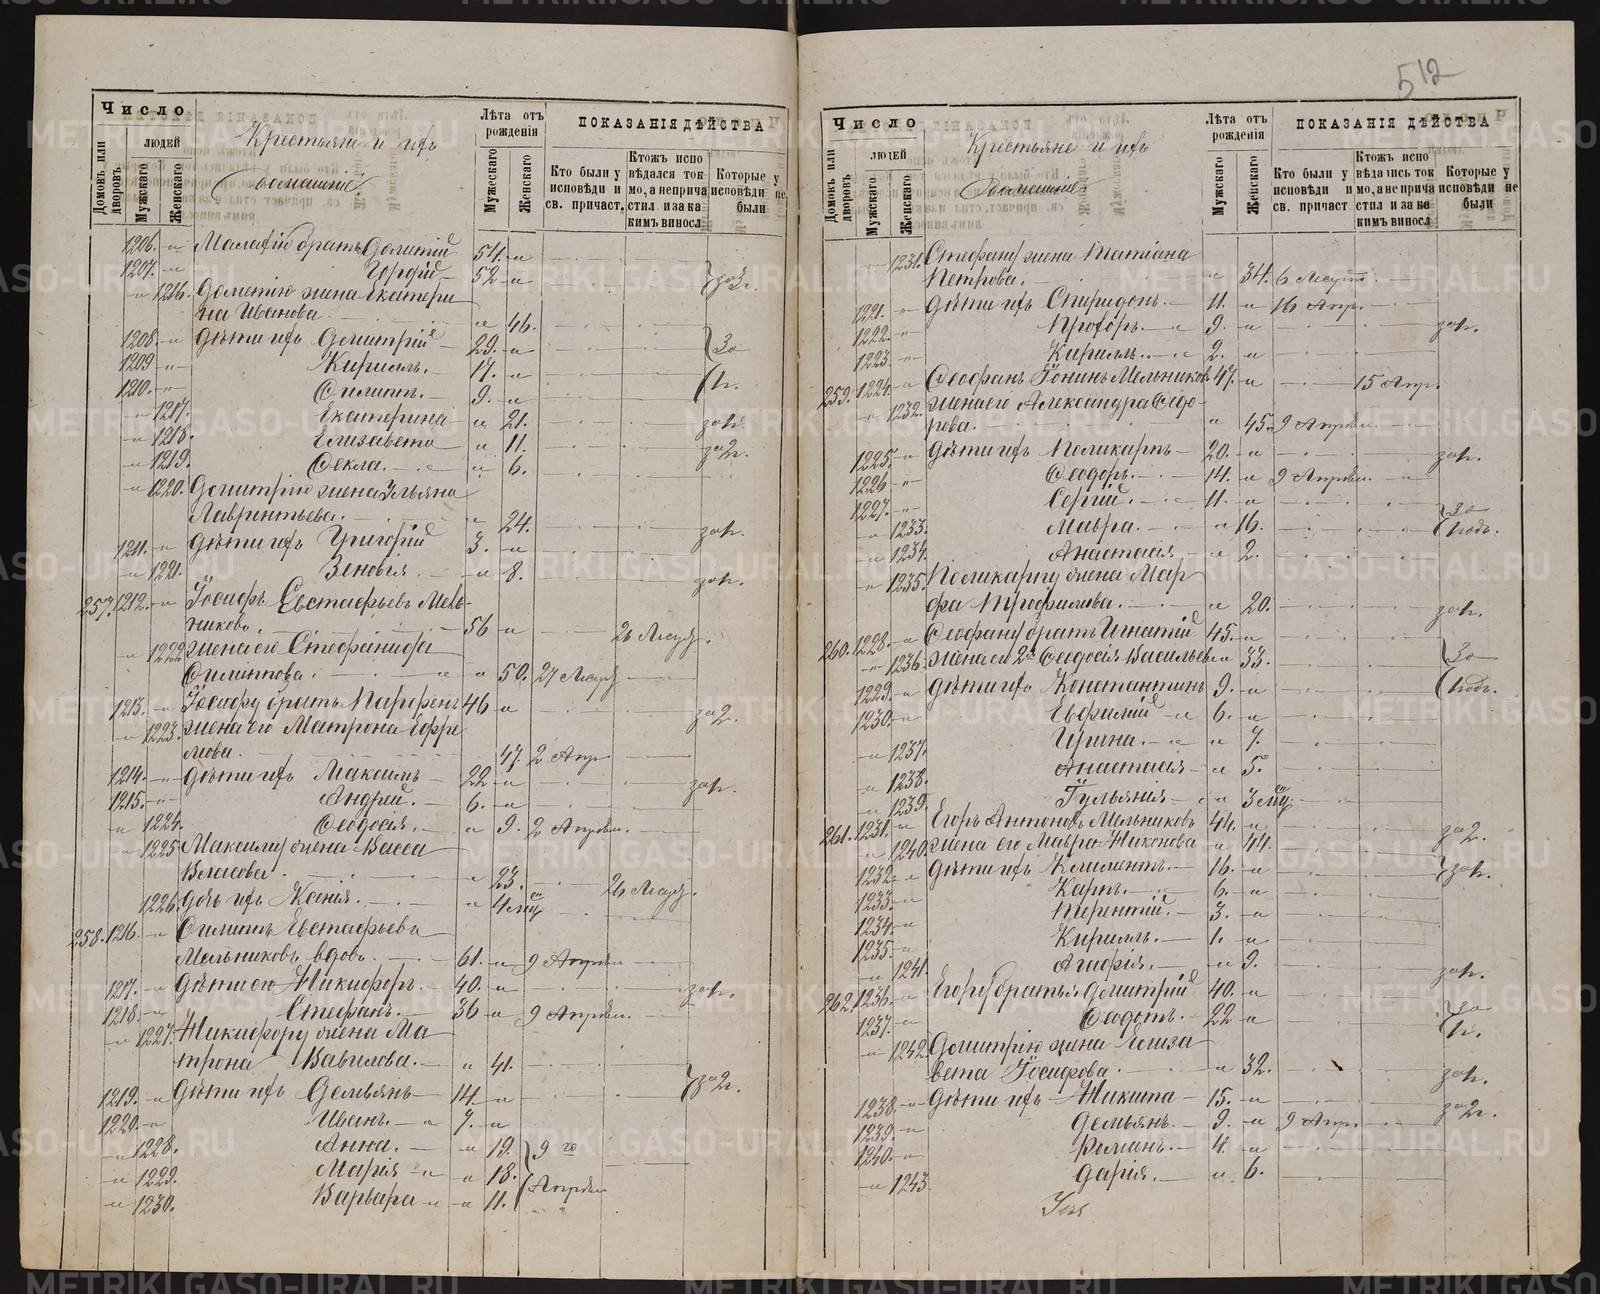 512
Число
людей
Домовъ или дворовъ.
Мужскаго
Женскаго
Крестьяне и ихъ
домашніе
Лѣта отъ рожденія
Мужескаго
Женскаго
ПОКАЗАНІЯ ДѢЙСТВА
Кто были у исповѣди и св. причаст.
Ктожъ испо вѣдался ток мо, а неприча стил и за ка кимъ виносл
Которые у исповѣди не были
1206. -"- Малафію братъ Дометій 54. "
1207. -"- Гордій 52 " за 3г.
-"- 1216. Дометію жена Екатери
на Иванова. " 46.
1208. -"- Дѣти ихъ Димитрій 29. " За
1209 -"- Кириллъ. 17. "
1210. -"- Филиппъ. 9. " н.
-"- 1217. Екатерина " 21. за н.
-"- 1218. Елизавета " 11. за 2г.
-"- 1219. Фекла. " 6.
-"- 1220. Димитрію жена Ульяна
Лаврентьева. " 24. за н.
1211. -"- Дѣти ихъ Григорій 3. "
-"- 1221. Зеновія. " 8. за н.
257. 1212. -"- Іосифъ Евстафьевъ Мель-
никовъ. 56 " 26 Марта.
-"- 1222. жена его Стефанида
Филиппова. " 50. 27 Марта
1213. -"- Іосифу братъ Парфенъ 46 " за 2.
-"- 1223. жена его Матрона Ефре
мова. 47. 2 Апр
1214. -"- Дѣти ихъ Максимъ 22 " за н.
1215. -"- Андрей. 6. "
-"- 1224. Феодосія. " 9. 2 Апрѣля.
-"- 1225 Максиму жена Васса
Власова. " 23. 26 Марта.
1226. Дочь ихъ Ксенія. " 4 мц
258. 1216. -"- Филиппъ Евстафьевъ
Мельниковъ вдовъ. 61. " 9 Апрѣля
1217. -"- Дѣти его Никифоръ. 40. " за н.
1218. -"- Стефанъ. 36 " 9 Апрѣля.
-"- 1227. Никифору жена Ма
трона Вавилова. " 41.
1219. -"- Дѣти ихъ Демьянъ 14. " за 2г.
1220. -"- Иванъ. 7. "
-"- 1228. Анна. " 19. 9 го
-"- 1229. Марія " 18. Апрѣля
-"- 1230. Варвара " 11.
Число
людей
Домовъ или дворовъ.
Мужскаго
Женскаго
Крестьяне и ихъ
домашніе
Лѣта отъ рожденія
Мужскаго
Женскаго
ПОКАЗАНІЯ ДѢЙСТВА
Кто были у исповѣди и св. причаст
Ктожъ испо вѣда лсь ток мо, а не прича стил и за ка кимъ виносл
Которые у исповѣди не были
-"- 1231. Стефану жена Татіана
Петрова. " 34. 6 Марта.
1221. -"- Дѣти ихъ Спиридонъ. 11. " 16 Апр.
1222. -"- Прохоръ. 9. " за н.
1223. -"- Кириллъ. 2. "
259. 1224. -"- Феофанъ Іонинъ Мельниковъ 47. " 15 Апр.
-"- 1232. жена его Александра Федо-
рова. " 45. 9 Апрѣля.
1225. -"- Дѣти ихъ Поликарпъ 20. " за н.
1226 -"- Феодоръ. 14. " 9 Апрѣля.
1227. -"- Сергій. 11. " За
-"- 1233. Мавра. " 16.
-"- 1234. Анастасія " 2.
-"- 1235. Поликарпу жена Мар
фа Трофимова. " 20. за н.
260. 1228. -"- Феофану братъ Игнатій 45. "
-"- 1236. жена его 2я Феодосія Васильева " 33. За
1229. -"- Дѣти ихъ Константинъ 9. "
1230. -"- Евфимій 6. "
-"- 1237. Ирина. " 7.
-"- 1238. Анастасія " 5.
-"- 1239. Іульянія " 3 мц.
261. 1231. -"- Егоръ Антоновъ Мельниковъ 44. " за 2.
-"- 1240 жена его Мавра Никонова " 44.
1232. -"- Дѣти ихъ Климентъ. 16. " за н.
1233. -"- Карпъ. 6. "
1234. -"- Терентій. 3. "
1235. -"- Кириллъ. 1. "
-"- 1241. Агафія. " 9. за н.
262. 1236. -"- Егору братья Димитрій 40. " За
1237. -"- Феодотъ. 22 " н.
-"- 1242. Димитрію жена Елиза
вета Іосифова. " 32. за н.
1238. -"- Дѣти ихъ Никита 15. " за 2г.
1239. -"- Демьянъ. 9. " 9 Апр.
1240. -"- Романъ. 4. "
-"- 1243. Дарія. " 6.